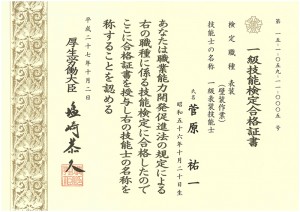 一級技能検定合格証書
検定職種 表装
(壁装作業)
技能士の名称 一級表装技能士
氏名 菅原祐一
昭和五十六年十月二十日生
あなたは職業能力開発促進法の規定による
右の職種に係る技能検定に合格したので
ここに合格証書を授与し右の技能士の名称を
称することを認める
平成二十七年十月二日
厚生労働大臣 塩崎恭久